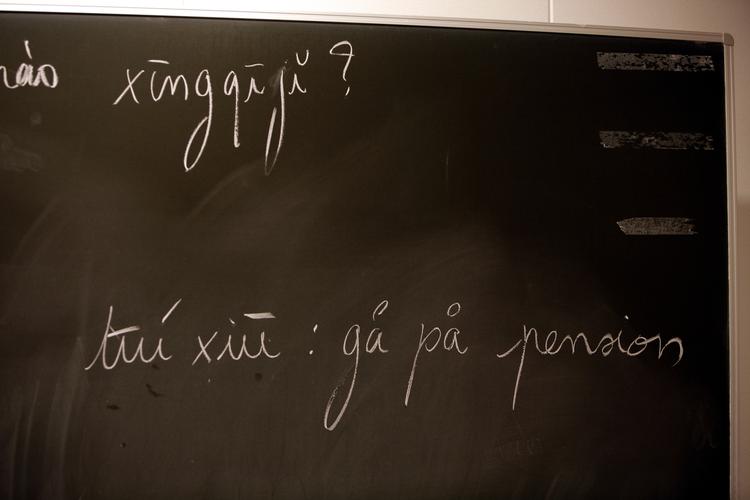 hào xīngqījǐ?
tuí xiū : gå på pension